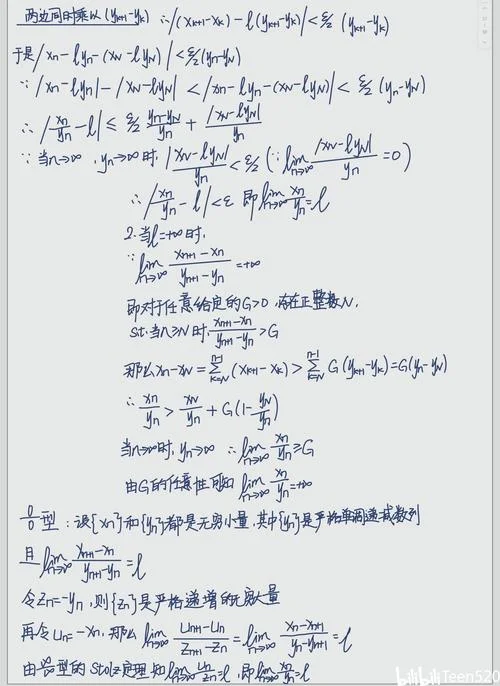 两边同时乘以(yₖ₊₁-yₖ) ∴|(xₖ₊₁-xₖ)-l(yₖ₊₁-yₖ)|<ε/2 (yₖ₊₁-yₖ)
于是|xn-lyn-(xN-lyN)|<ε/2(yn-yN)
∵|xn-lyn|-|xN-lyN|<|xn-lyn-(xN-lyN)|<ε/2(yn-yN)
∴|xn/yn-l|≤ε/2 (yn-yN)/yn+|xN-lyN|/yn
∵当n→∞,yn→∞时,|xN-lyN|/yn<ε/2(∵lim n→∞ |xN-lyN|/yn=0)
∴|xn/yn-l|<ε 即lim n→∞ xn/yn=l
2.当l=+∞时,
∵lim n→∞ (xn+1-xn)/(yn+1-yn)=+∞
即对于任意给定的G>0,存在正整数N,
s.t.当n≥N时,(xn+1-xn)/(yn+1-yn)>G
那么xn-xN=∑ k=N n-1 (xk+1-xk)>∑ k=N n-1 G(yk+1-yk)=G(yn-yN)
∴xn/yn>xN/yn+G(1-yN/yn)
当n→∞时,yn→∞ ∴lim n→∞ xn/yn≥G
由G的任意性可知 lim n→∞ xn/yn=+∞
0/0型:设{xn}和{yn}都是无穷小量,其中{yn}是严格单调递减数列
且lim n→∞ (xn+1-xn)/(yn+1-yn)=l
令Zn=-yn,则{zn}是严格递增的无穷大量
再令Un=-xn,那么lim n→∞ (Un+1-Un)/(Zn+1-Zn)=lim n→∞ (xn-xn+1)/(yn-yn+1)=l
由∞/∞型的Stolz定理知lim n→∞ Un/Zn=l,即lim n→∞ xn/yn=l
bilibili Teen520